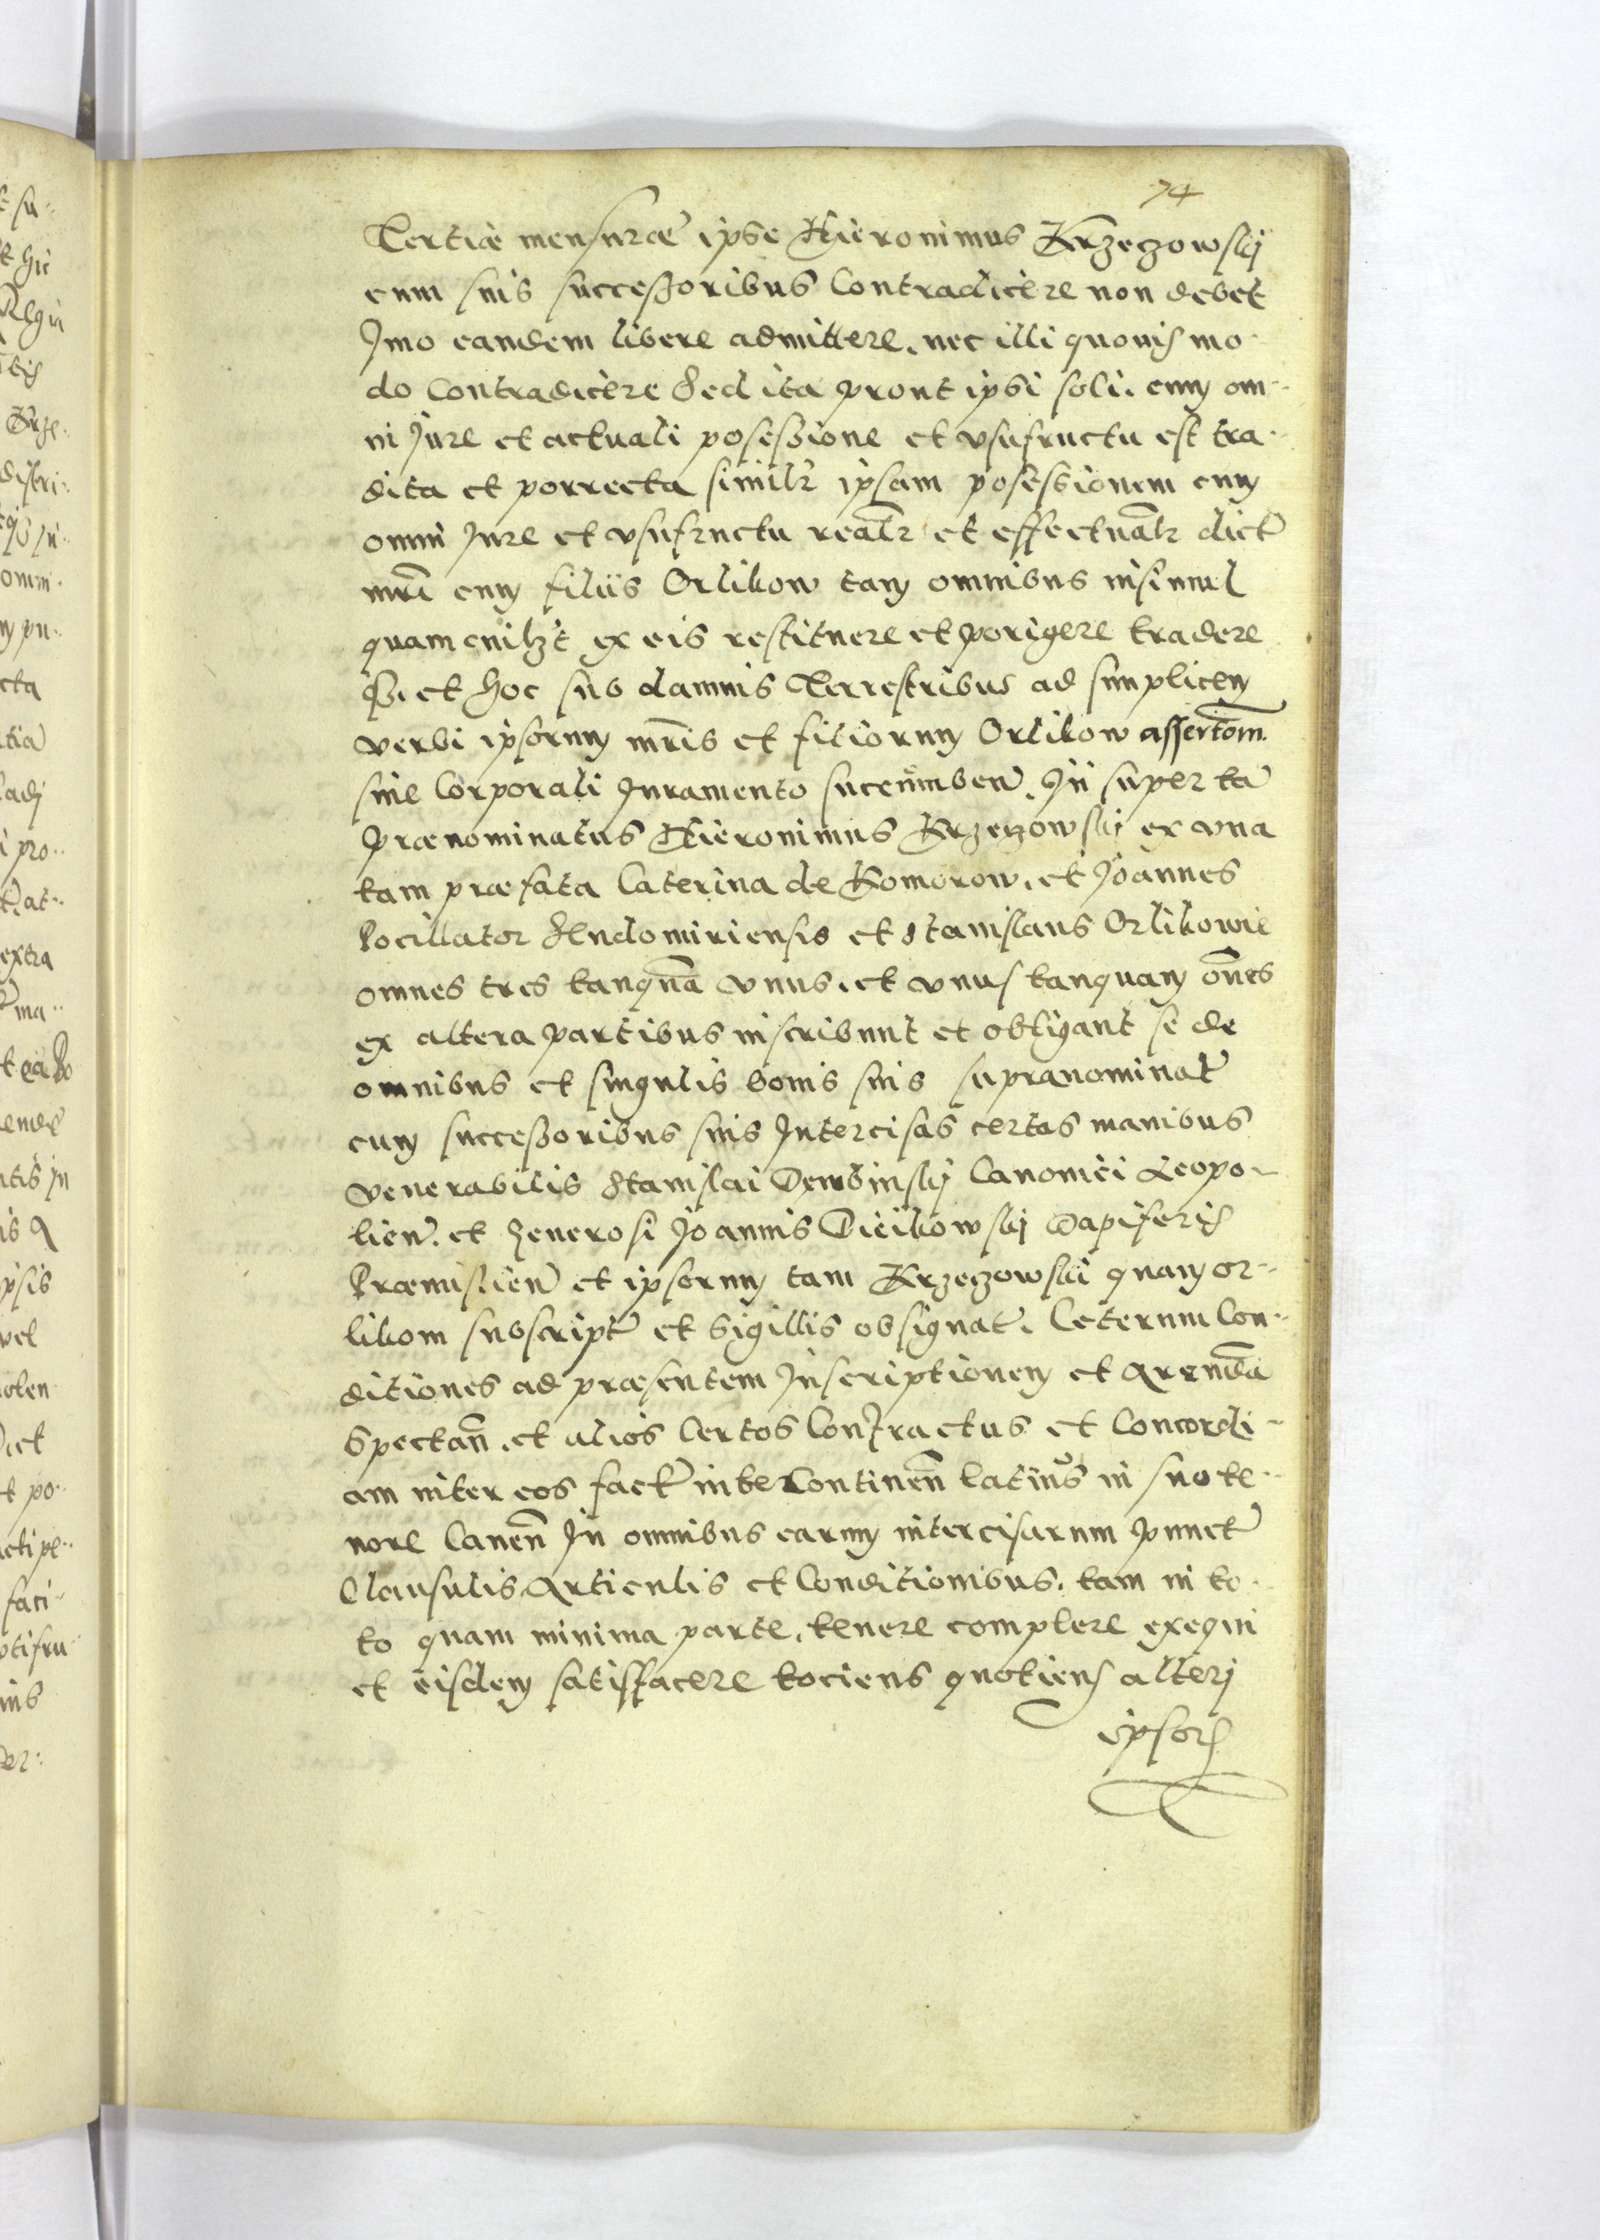 74
Tertiæ mensuræ ipse Hieronimus Krzeczowskij
cum suis successoribus Contradicere non debet
Imo eandem libere admittere, nec illi quouis mo-
do Contradicere Sed ita prout ipsi soli, cum om-
ni Jure et actuali posessione et vsufructu est tra-
dita et porrecta similr ipsam posessionem cum
omni Jure et vsufructu realr et effectualr dict
mri cum filiis Orlikow tam omnibus insimul
quam cuilzt ex eis restituere et porigere tradere
Et hoc sub damnis Terrestribus ad simplicem
verbi ipsorum mris et filiorum Orlikow assertom.
sine Corporali Juramento succumben. In super ta
Prænominatus Hieronimus Krzeczowskij ex vna
tam præfata Caterina de Komorow, et Joannes
Pocillator Sendomiriensis et Stanislaus Orlikowie
omnes tres tanqua vnus, et vnus tanquam ones
ex altera partibus inscribunt et obligant se de
omnibus et singulis bonis suis supranominat
cum successoribus suis Intercisas certas manibus
venerabilis Stanislai Dembinskij Canonici Leopo-
lien. et Generosi Joannis Dieikowskij Dapiferis
Præmislien et ipsorum tam Krzeczowski quam Or-
likom subscript et Sigillis obsignat. Ceterum Con-
ditiones ad præsentem Inscriptionem et Arenda
Spectan. et alios Certos Contractus et Concordi-
am inter eos fact inibe Continen latius in suo te-
nore Canen In omnibus earum intercisarum Punct
Clausulis Articulis et Conditionibus, tam in to-
to quam minima parte, tenere complere exequi
et eisdem satisfacere tociens quotiens alteri
ipsor